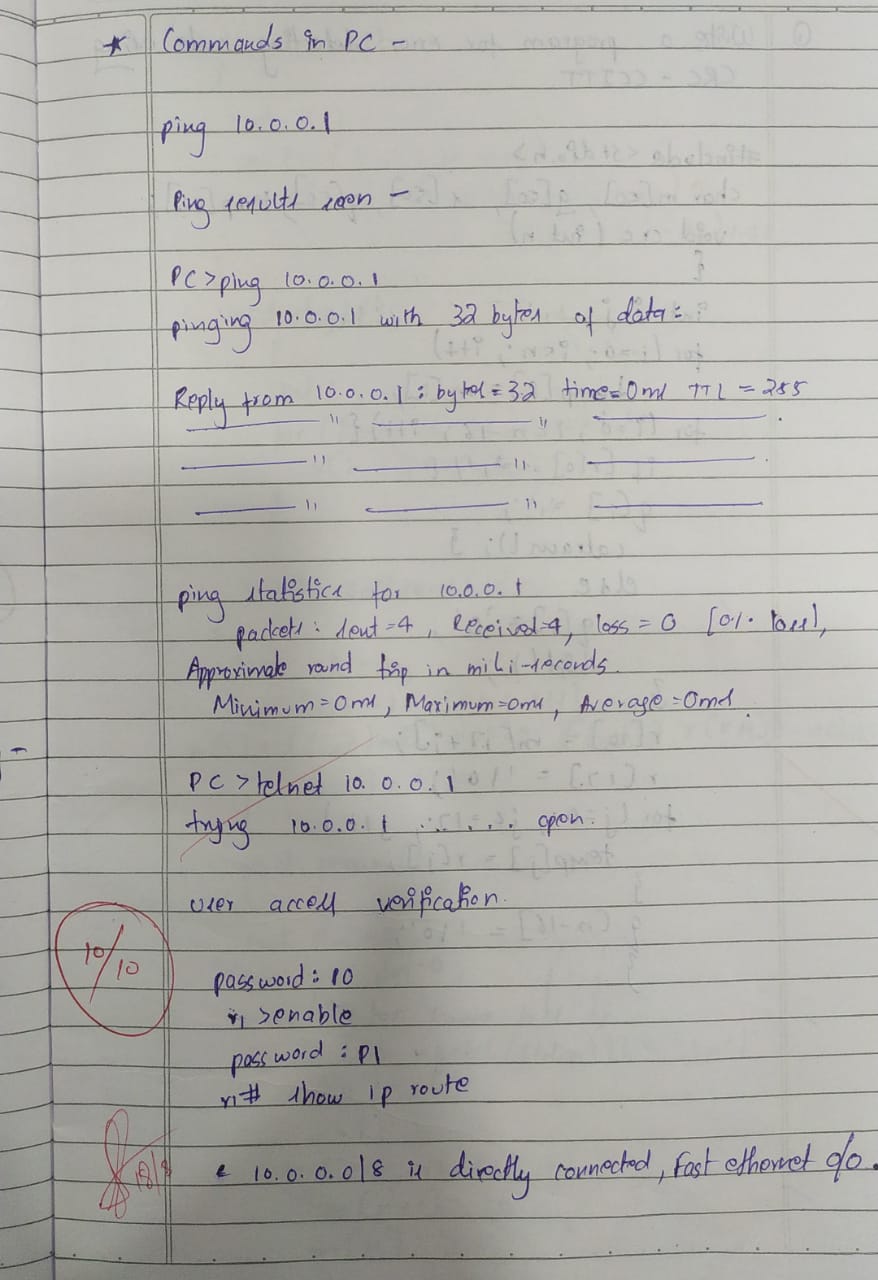 * Commands in PC -
ping 10.0.0.1
Ping results
PC>ping 10.0.0.1
pinging 10.0.0.1 with 32 bytes of data:
Reply from 10.0.0.1: bytes=32 time=0ms TTL = 255
" "
" "
" "
ping statistics for 10.0.0.1
packets: sent=4, Received=4, loss = 0 [0% loss],
Approximate round trip in mili-seconds.
Minimum=0ms, Maximum=0ms, Average=0ms.
PC>telnet 10.0.0.1
trying 10.0.0.1 ....... open.
User access verification.
password: 10
r1 >enable
password: P1
r1# show ip route
10/10
c 10.0.0.0/8 is directly connected, Fast ethernet 0/0.